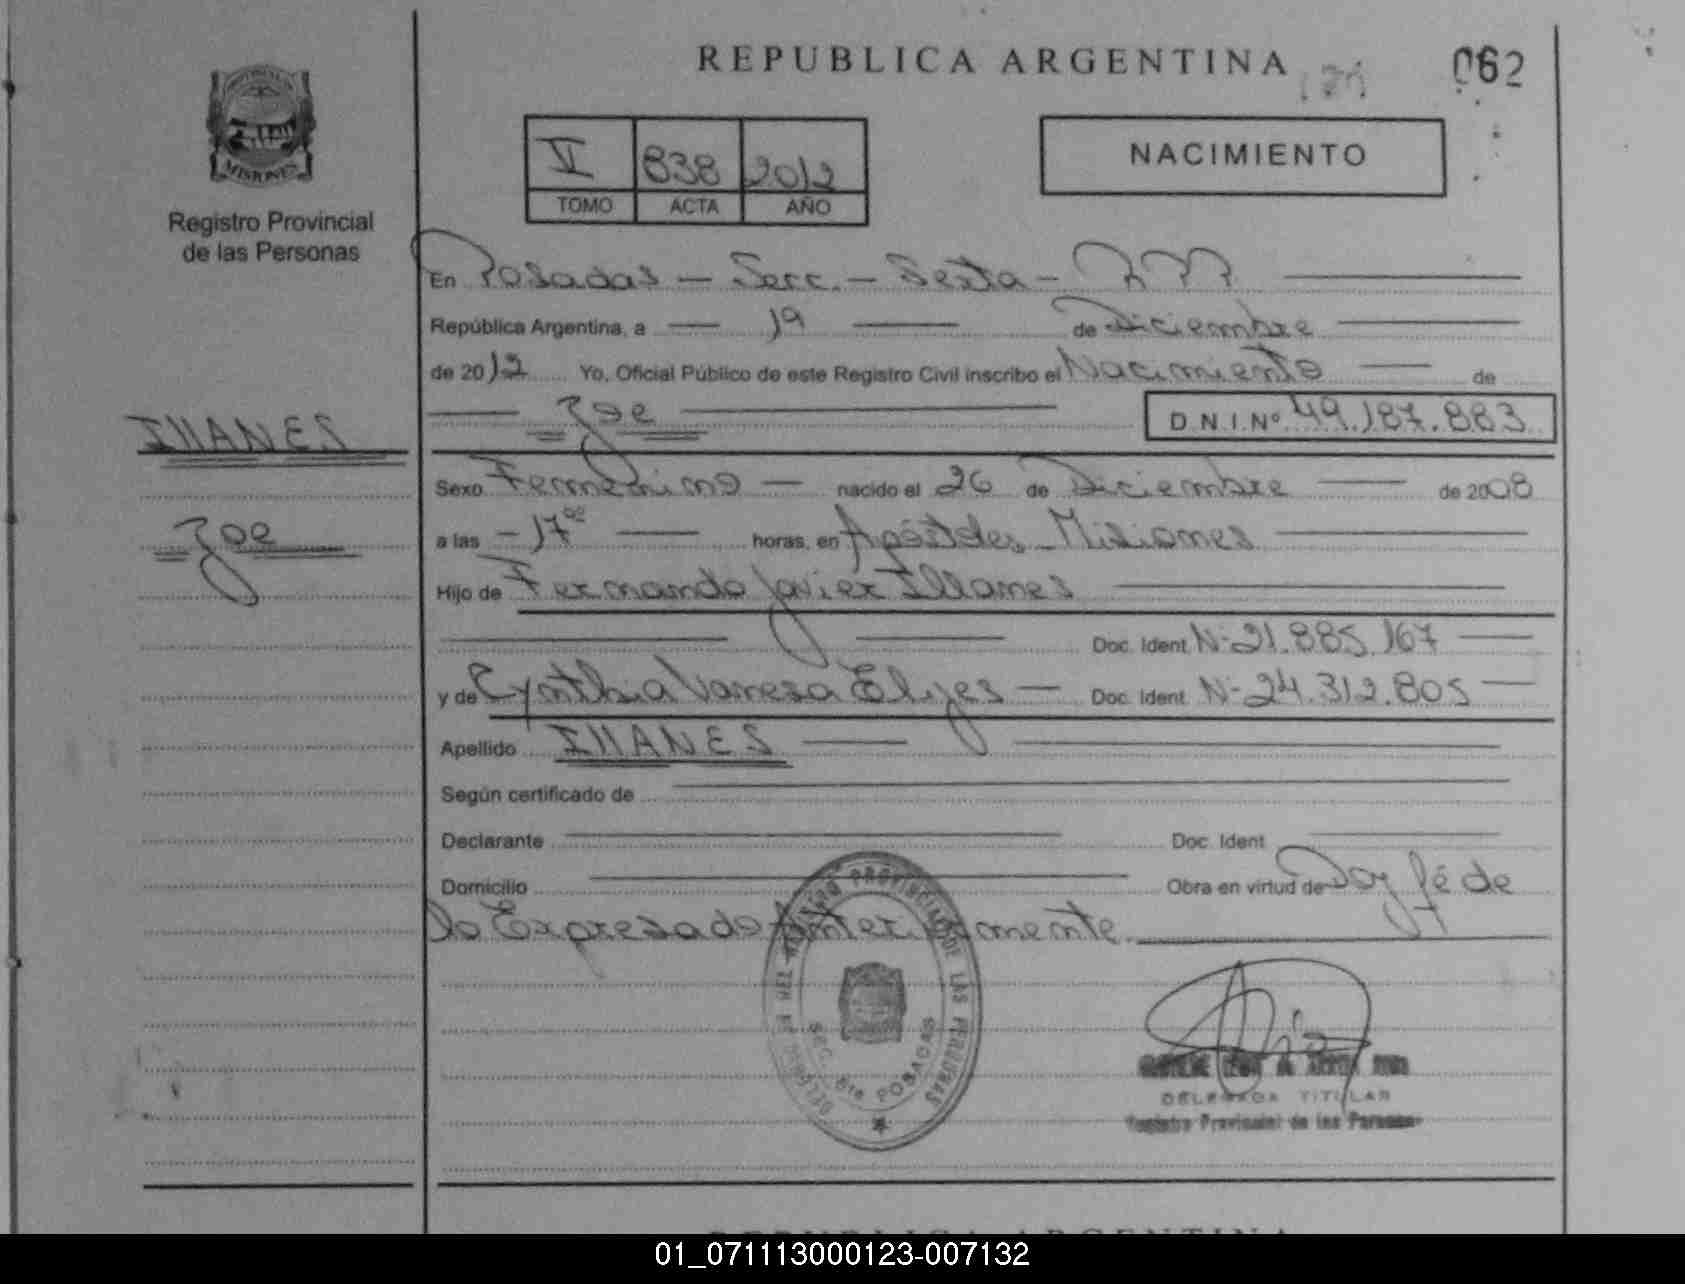 REPUBLICA ARGENTINA
062
MISIONES
Registro Provincial
de las Personas
VI 838 2012
TOMO ACTA AÑO
NACIMIENTO
En Posadas - Secc. - Sexta -
República Argentina, a 19 de Diciembre
de 2012 Yo, Oficial Público de este Registro Civil inscribo el Nacimiento de
Zoe D.N.I.Nº 49.187.883
ILLANES
Zoe
Sexo Femenino - nacido el 26 de Diciembre de 2008
a las - 17 horas, en Apóstoles - Misiones
Hijo de Fernando Javier Illanes
Doc. Ident. Nº 21.885.167
y de Cynthia Vanesa Elyes - Doc. Ident. Nº 24.312.805
Apellido ILLANES
Según certificado de
Declarante Doc. Ident.
Domicilio Obra en virtud de Doy fé de
lo Expresado Anteriormente
REGISTRO PROVINCIAL DE LAS PERSONAS
Sec. 6ta POSADAS
DELEGADA TITULAR
Registro Provincial de las Personas
REPUBLICA ARGENTINA
01_071113000123-007132